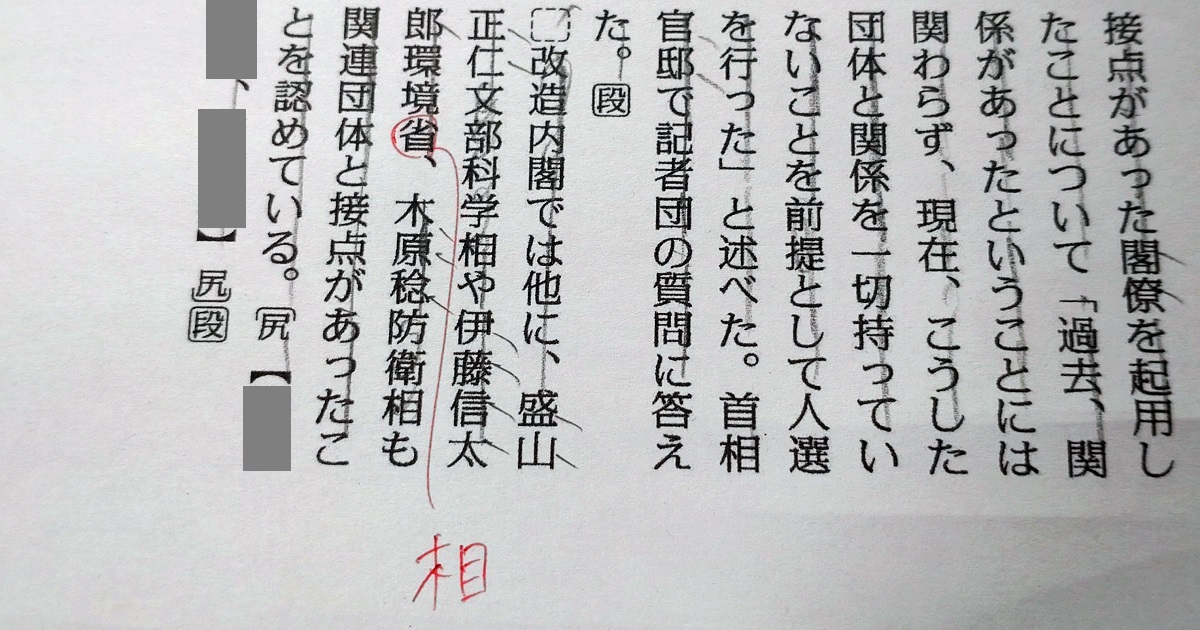 接点があった閣僚を起用し
たことについて「過去、関
係があったということには
関わらず、現在、こうした
団体と関係を一切持ってい
ないことを前提として人選
を行った」と述べた。首相
官邸で記者団の質問に答え
た。段
改造内閣では他に、盛山
正仁文部科学相や伊藤信太
郎環境省、木原稔防衛相も
関連団体と接点があったこ
とを認めている。尻【
、】尻段
相